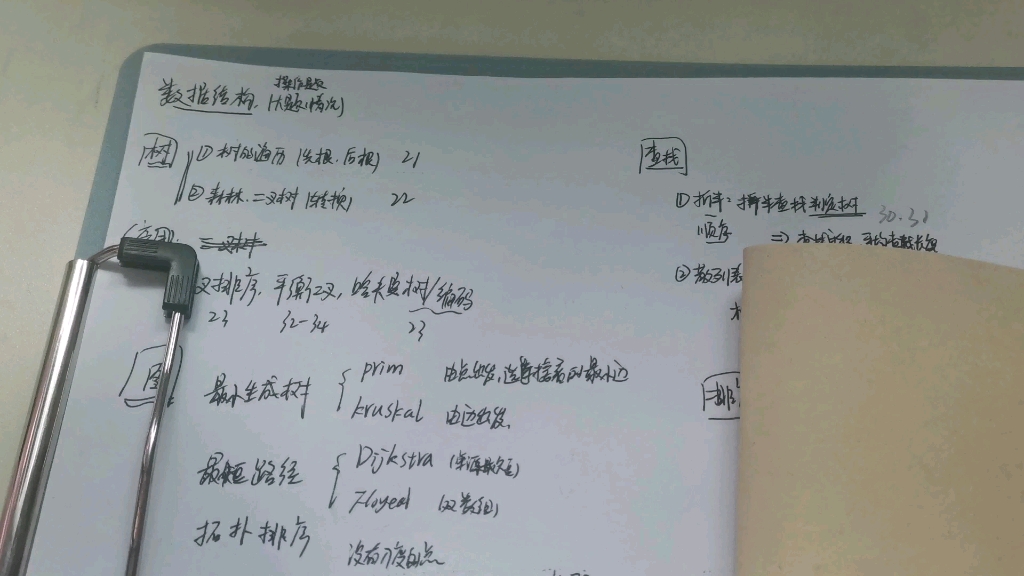 操作题
数据结构.(大题情况)
树
① 树的遍历(先根.后根) 21
② 森林.二叉树(转换) 22
应用
叉排序.平衡二叉,哈夫曼树/编码
23 32-34 23
图
最小生成树
prim 由点出发,选择挨着的最小边
kruskal 由边出发.
最短路径
Dijkstra
Floyed (双数组)
拓扑排序
没有入度的点
查找
① 折半:折半查找判定树
顺序
30.31
② 散列表
排